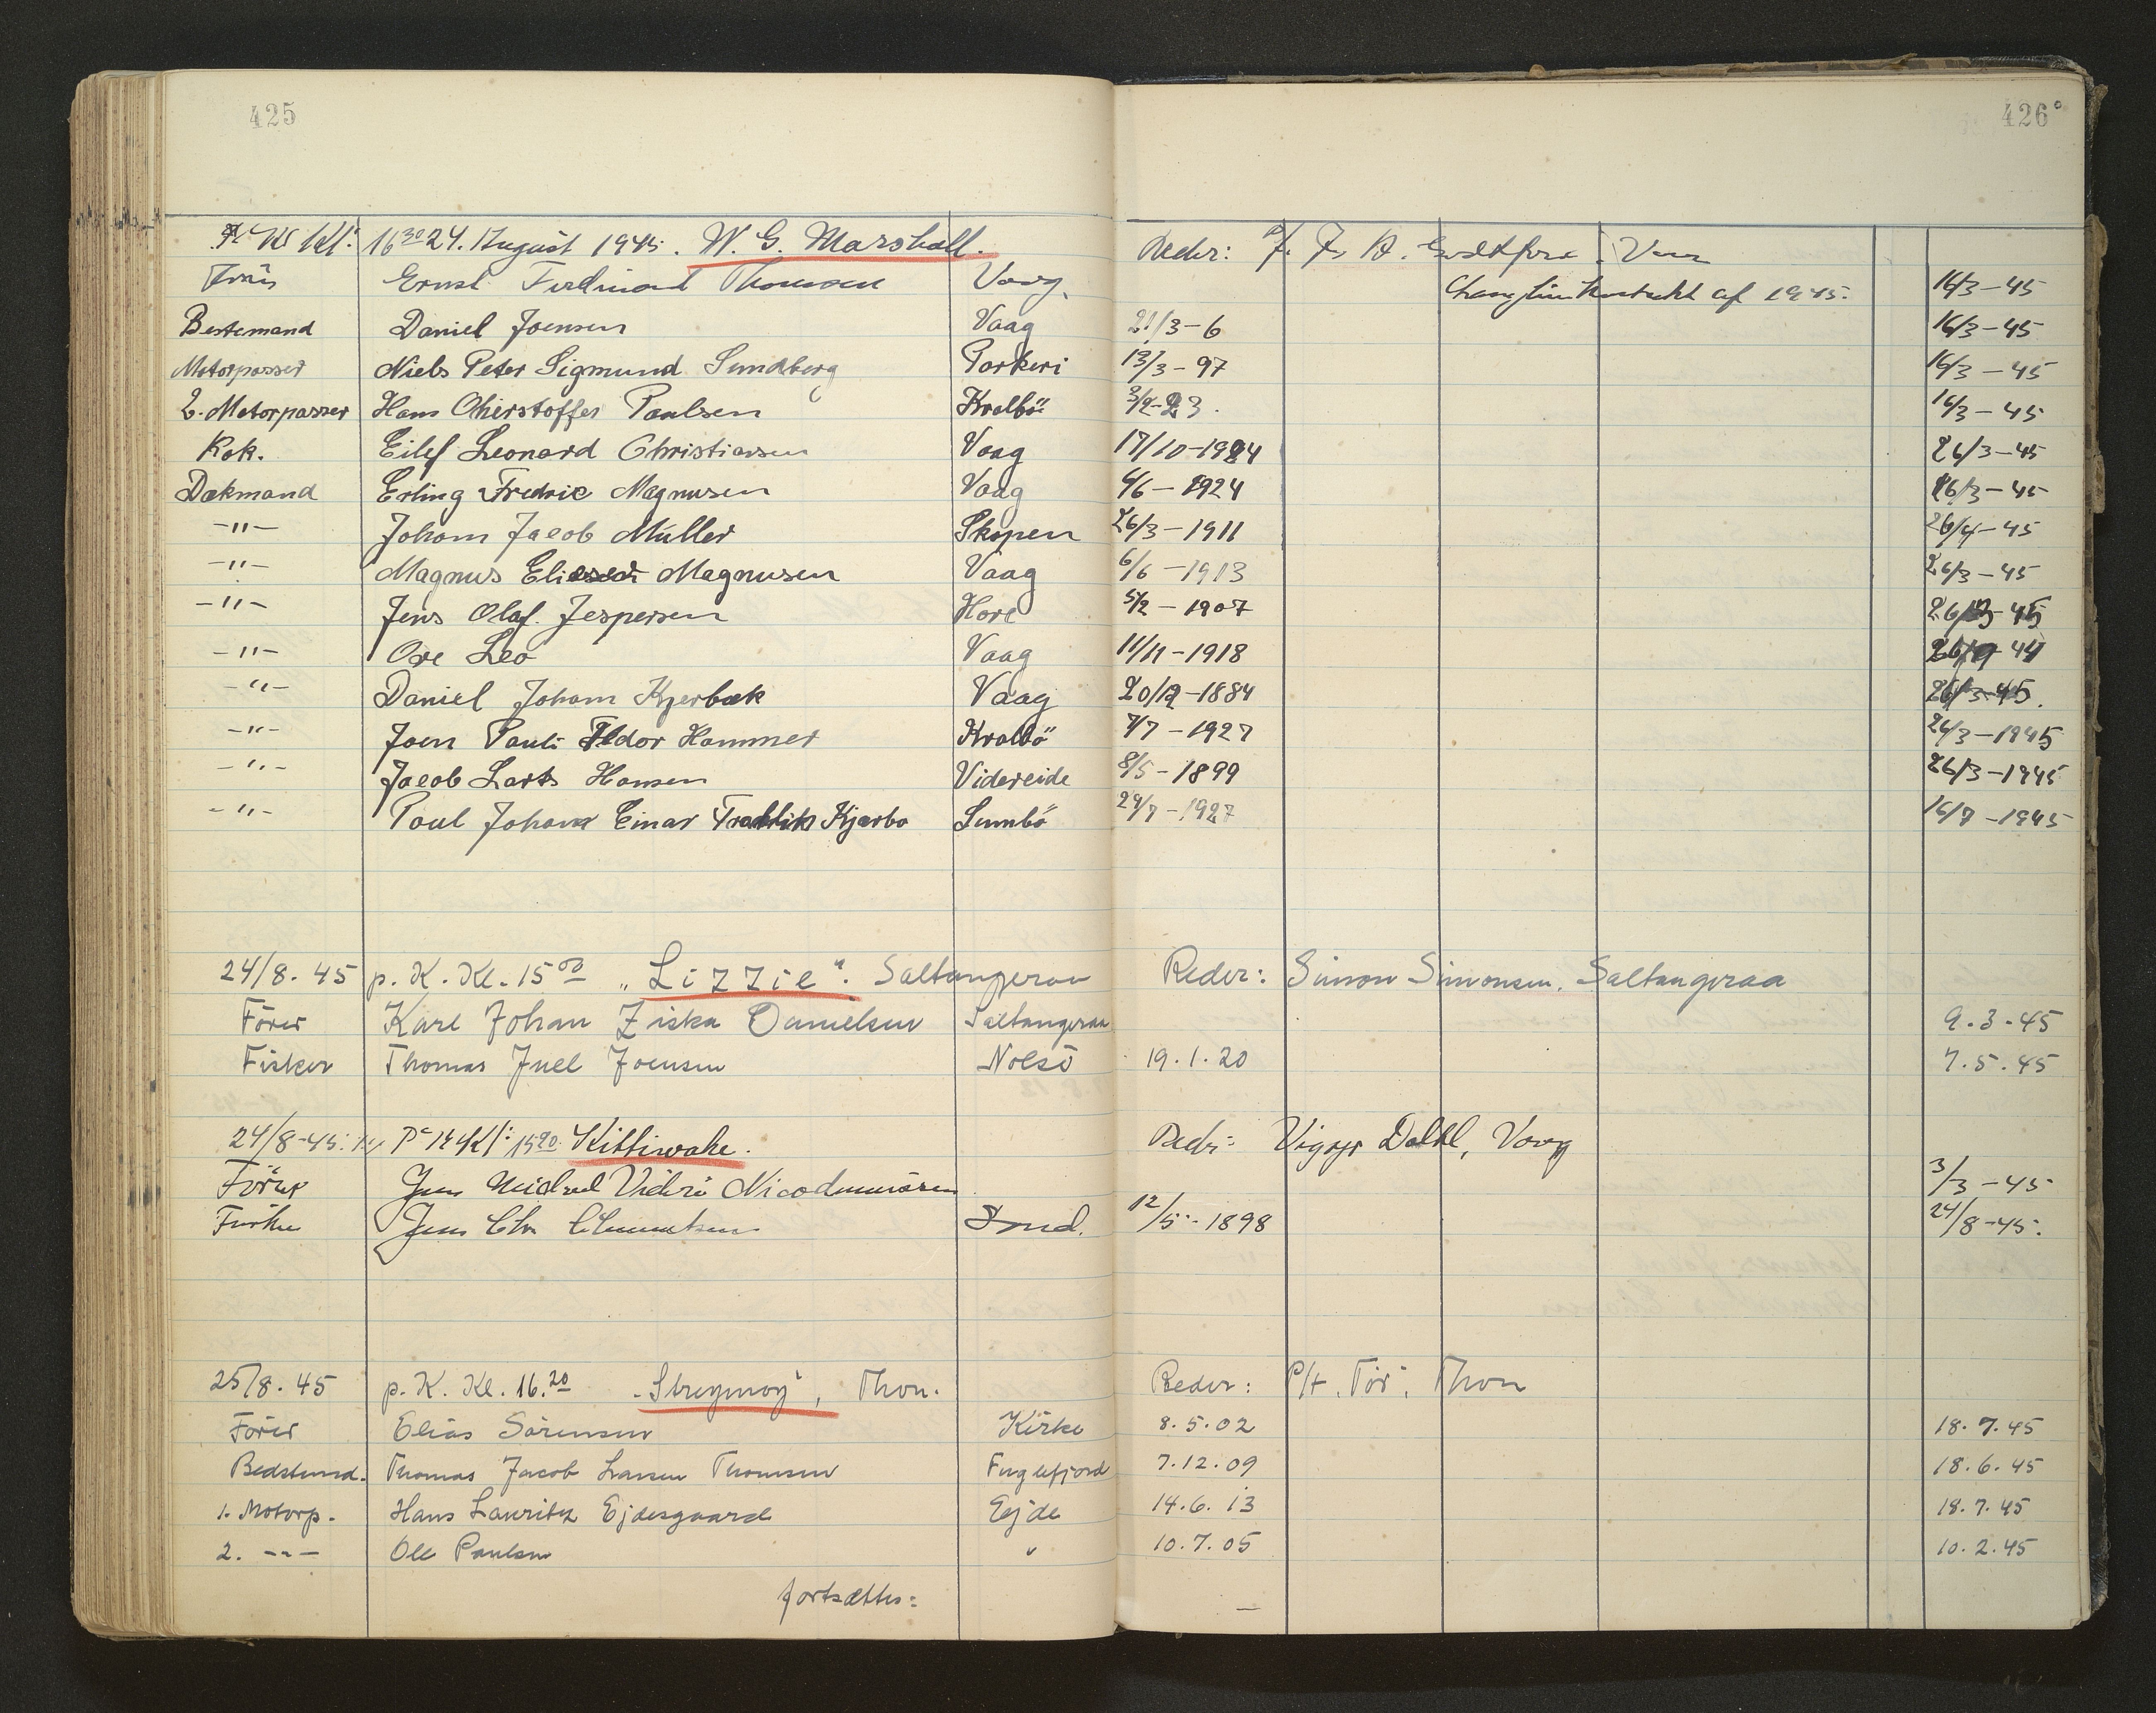 425
426
Kl: 16³⁰ 24. August 1945. W. G. Marshall. Reder: Vaag
Ernst Ferdinand Thomsen Vaag 16/3-45
af 1945.
Bestemand Daniel Joensen Vaag 21/3-6 16/3-45
Motorpasser Niels Peter Sigmund Sundberg Porkeri 13/3-97 16/3-45
2. Motorpasser Hans Cherstoffer Poulsen Kvalbö 23. 16/3-45
Kok. Eilef Leonard Christiansen Vaag 17/10-1924 26/3-45
Dækmand Erling Fredric Magnusen Vaag 6/6-1924 26/3-45
-"- Johan Jacob Müller Skopen 26/3-1911 26/4-45
-"- Magnus Magnusen Vaag 6/6-1913 26/3-45
-"- Jens Olaf. Jespersen Hove 5/2-1907
-"- Ove Leo Vaag 11/11-1918
-"- Daniel Johann Kjerbæk Vaag 20/12-1884 26/3-45.
-"- Joen Pauli Hammer Kvalbö 7/7-1927 26/3-1945
-"- Jacob Lars Hansen Videreide 8/5-1899 26/3-1945
-"- Poul Johan Einar Kjærbo Sumbö 24/7-1927 16/7-1945
24/8. 45 p. K. Kl. 15⁰⁰ „Lizzie". Saltangeraa Reder: Simon Simonsen. Saltangeraa
Förer Karl Johan Ziska Danielsen Saltangeraa 9.3.45
Fisker Thomas Juel Joensen Nolsö 19.1.20 7.5.45
24/8-45: Kl: Kittiwake. Reder: Dahl, Vaag
Förer Jens Videri Nicodemussen 3/3-45
Jens Chr. Clementsen Sand. 12/5-1898 24/8-45.
25/8. 45 p. K. Kl. 16.²⁰ „Streymoy", Thvn. Reder: P/f. Tor. Thvn
Förer Elias Sörensen Kirke 8.5.02 18.7.45
Bedstemd. Thomas Jacob Larsen Thomsen Fuglefjord 7.12.09 18.6.45
1. Motorp. Hans Lauritz Ejdesgaard Ejde 14.6.13 18.7.45
2. -"- Ole Poulsen " 10.7.05 10.2.45
fortsættes: